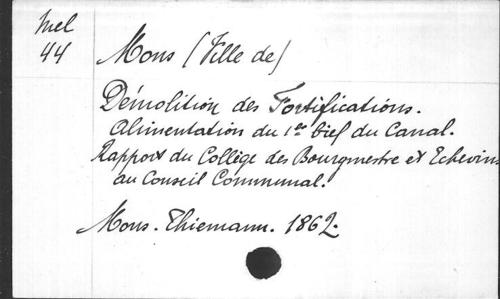 Mel
44
Mons (Ville de)
Démolition des Fortifications.
Alimentation du 1er bief du Canal.
Rapport du Collège des Bourgmestre et Echevins
au Conseil Communal.
Mons. Thiemann. 1862.